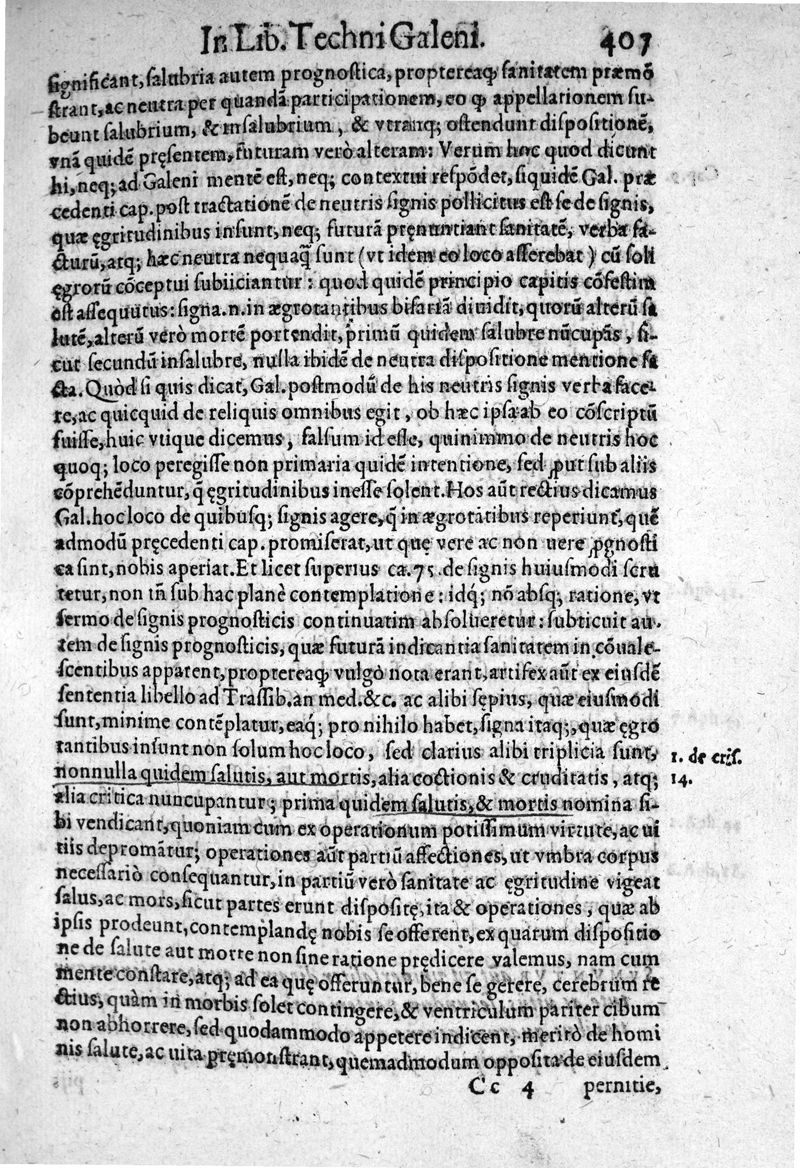 In Lib. Techni Galeni. 407
significant, salubria autem prognostica, proptereaq; sanitatem præmõ
strant, ac neutra per quandã participationem, eo ꝙ appellationem su-
beunt salubrium, & insalubrium, & vtranq; ostendunt dispositionẽ,
vnã quidẽ pręsentem, futuram verò alteram: Verùm hoc quod dicunt
hi, neq; ad Galeni mentẽ est, neq; contextui respõdet, siquidẽ Gal. præ
cedenti cap. post tractationẽ de neutris signis pollicitus est se de signis,
quæ ęgritudinibus insunt, neq; futurã pręnuntiant sanitatẽ, verba fa-
cturũ, atq; hæc neutra nequaq̃ sunt (vt idem eo loco afferebat) cũ soli
ęgrorũ cõceptui subiiciantur: quod quidẽ principio capitis cõfestim
est assequutus: signa.n. in ægrotantibus bifariã diuidit, quorũ alterũ sa
lutẽ, alterũ verò mortẽ portendit, primũ quidem salubre nũcupãs, si-
cut secundũ insalubre, nulla ibidẽ de neutra dispositione mentione fa
cta. Quòd si quis dicat, Gal. postmodũ de his neutris signis verba face-
re, ac quicquid de reliquis omnibus egit, ob hæc ipsa ab eo cõscriptũ
fuisse, huic vtique dicemus, falsum id esse, quinimmo de neutris hoc
quoq; loco peregisse non primaria quidẽ intentione, sed ꝓut sub aliis
cõprehẽduntur, q̃ ęgritudinibus inesse solent. Hos aũt rectius dicamus
Gal. hoc loco de quibusq; signis agere, q̃ in ægrotãtibus reperiunt̃, quẽ
admodũ pręcedenti cap. promiserat, ut quę vere ac non uere ꝓgnosti
ca sint, nobis aperiat. Et licet superius ca. 75. de signis huiusmodi scru
tetur, non tñ sub hac planè contemplatione: idq́; nõ absq; ratione, vt
sermo de signis prognosticis continuatim absolueretur: subticuit au-
tem de signis prognosticis, quæ futurã indicantia sanitatem in cõuale-
scentibus apparent, proptereaq; vulgò nota erant, artifex aũt ex eiusdẽ
sententia libello ad Trassib. an med. &c. ac alibi sępius, quæ eiusmodi
sunt, minime contẽplatur, eaq́; pro nihilo habet, signa itaq;, quæ ęgro
tantibus insunt non solum hoc loco, sed clarius alibi triplicia sunt, 1. de cris.
nonnulla quidem salutis, aut mortis, alia coctionis & cruditatis, atq; 14.
alia critica nuncupantur; prima quidem salutis, & mortis nomina si-
bi vendicant, quoniam cum ex operationum potissimum virtute, ac ui
tiis depromãtur; operationes aũt partiũ affectiones, ut vmbra corpus
necessariò consequantur, in partiũ verò sanitate ac ęgritudine vigeat
salus, ac mors, sicut partes erunt dispositę, ita & operationes, quæ ab
ipsis prodeunt, contemplandę nobis se offerent, ex quarum dispositio
ne de salute aut morte non sine ratione prędicere valemus, nam cum
mente constare, atq; ad ea quę offeruntur, bene se gerere, cerebrum re
ctius, quàm in morbis solet contingere, & ventriculum pariter cibum
non abhorrere, sed quodammodo appetere indicent, meritò de homi
nis salute, ac uita pręmonstrant, quemadmodum opposita de eiusdem
Cc 4 pernitie,